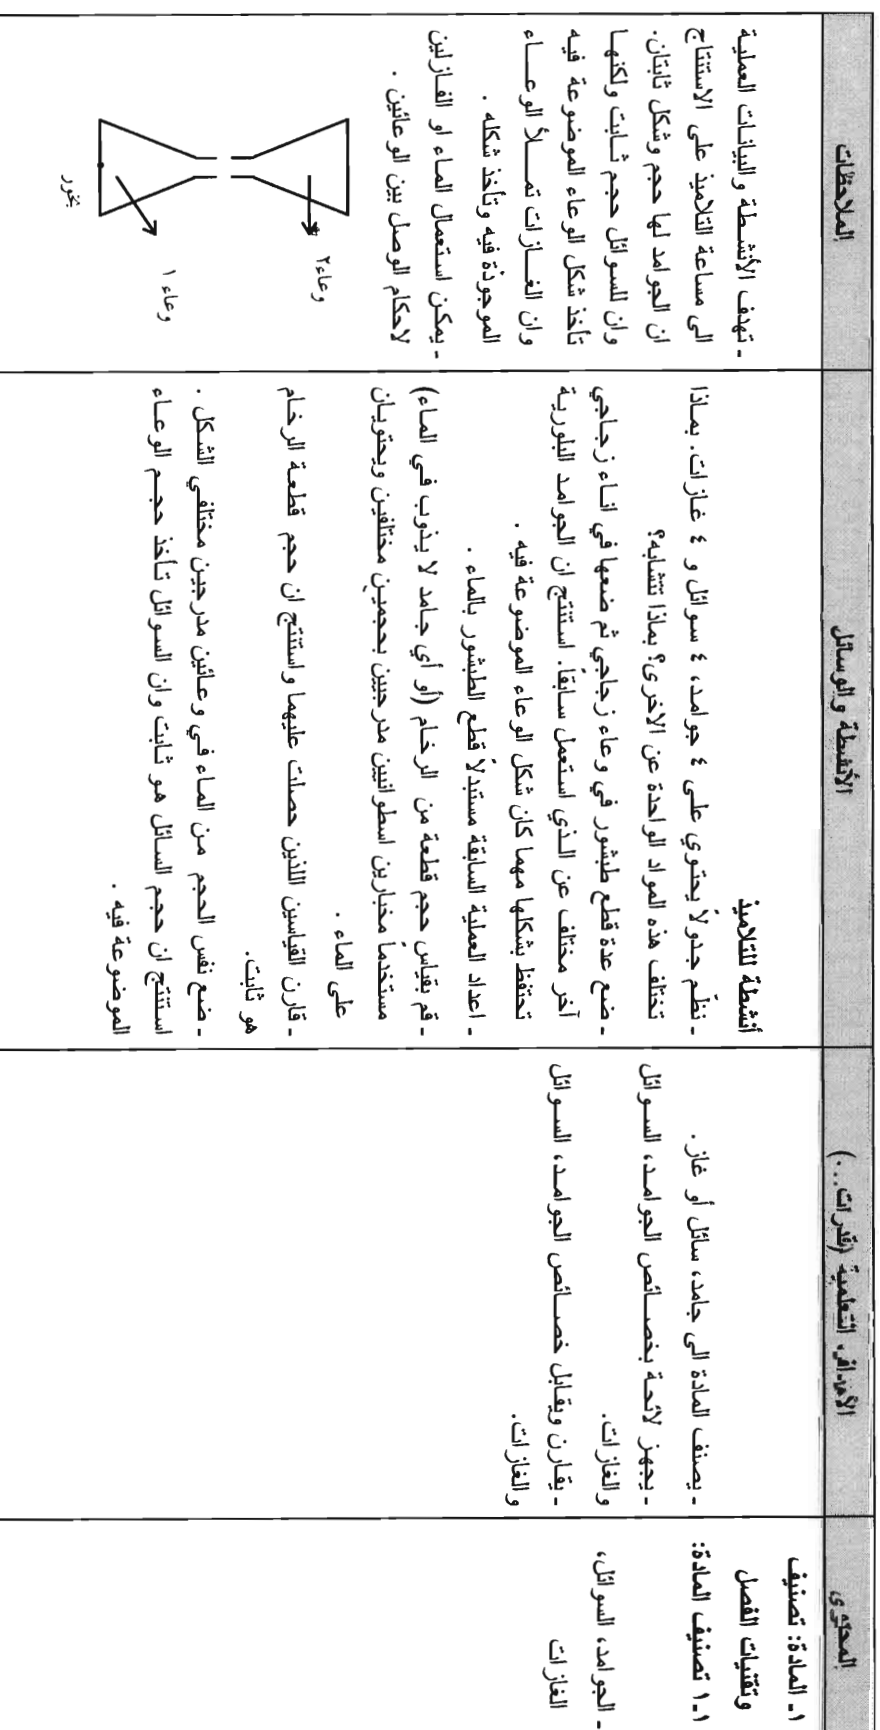 المحتوى
١ـ المادة: تصنيف
وتقنيات الفصل
١-١ تصنيف المادة:
ـ الجوامد، السوائل،
الغازات
الأهداف التعلمية (قدرات...)
ـ يصنف المادة الى جامد، سائل أو غاز.
ـ يجهز لائحة بخصائص الجوامد، السوائل
والغازات.
ـ يقارن ويقابل خصائص الجوامد، السوائل
والغازات.
الأنشطة والوسائل
أنشطة للتلاميذ
ـ نظّم جدولاً يحتوي على ٤ جوامد، ٤ سوائل و ٤ غازات. بماذا
تختلف هذه المواد الواحدة عن الاخرى؟ بماذا تتشابه؟
ـ ضع عدة قطع طبشور في وعاء زجاجي ثم ضعها في اناء زجاجي
آخر مختلف عن الذي استعمل سابقاً. استنتج ان الجوامد البلورية
تحتفظ بشكلها مهما كان شكل الوعاء الموضوعة فيه.
ـ اعداد العملية السابقة مستبدلاً قطع الطبشور بالماء.
ـ قم بقياس حجم قطعة من الرخام (أو أي جامد لا يذوب في الماء)
مستخدماً مخبارين اسطوانيين مدرجين بحجمين مختلفين ويحتويان
على الماء.
ـ قارن القياسين اللذين حصلت عليهما واستنتج ان حجم قطعة الرخام
هو ثابت.
ـ ضع نفس الحجم من الماء في وعائين مدرجين مختلفي الشكل.
استنتج ان حجم السائل هو ثابت وان السوائل تأخذ حجم الوعاء
الموضوعة فيه.
الملاحظات
ـ تهدف الأنشطة والبيانات العملية
الى مساعة التلاميذ على الاستنتاج
ان الجوامد لها حجم وشكل ثابتان.
وان للسوائل حجم ثابت ولكنها
تأخذ شكل الوعاء الموضوعة فيه
وان الغازات تملأ الوعاء
الموجودة فيه وتأخذ شكله.
ـ يمكن استعمال الماء او الفازلين
لاحكام الوصل بين الوعائين.
وعاء٢
وعاء ١
بخور